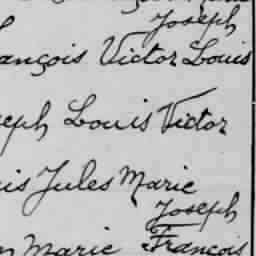 Joseph
ançois Victor Louis
eph Louis Victor
is Jules Marie
Joseph
n Marie François